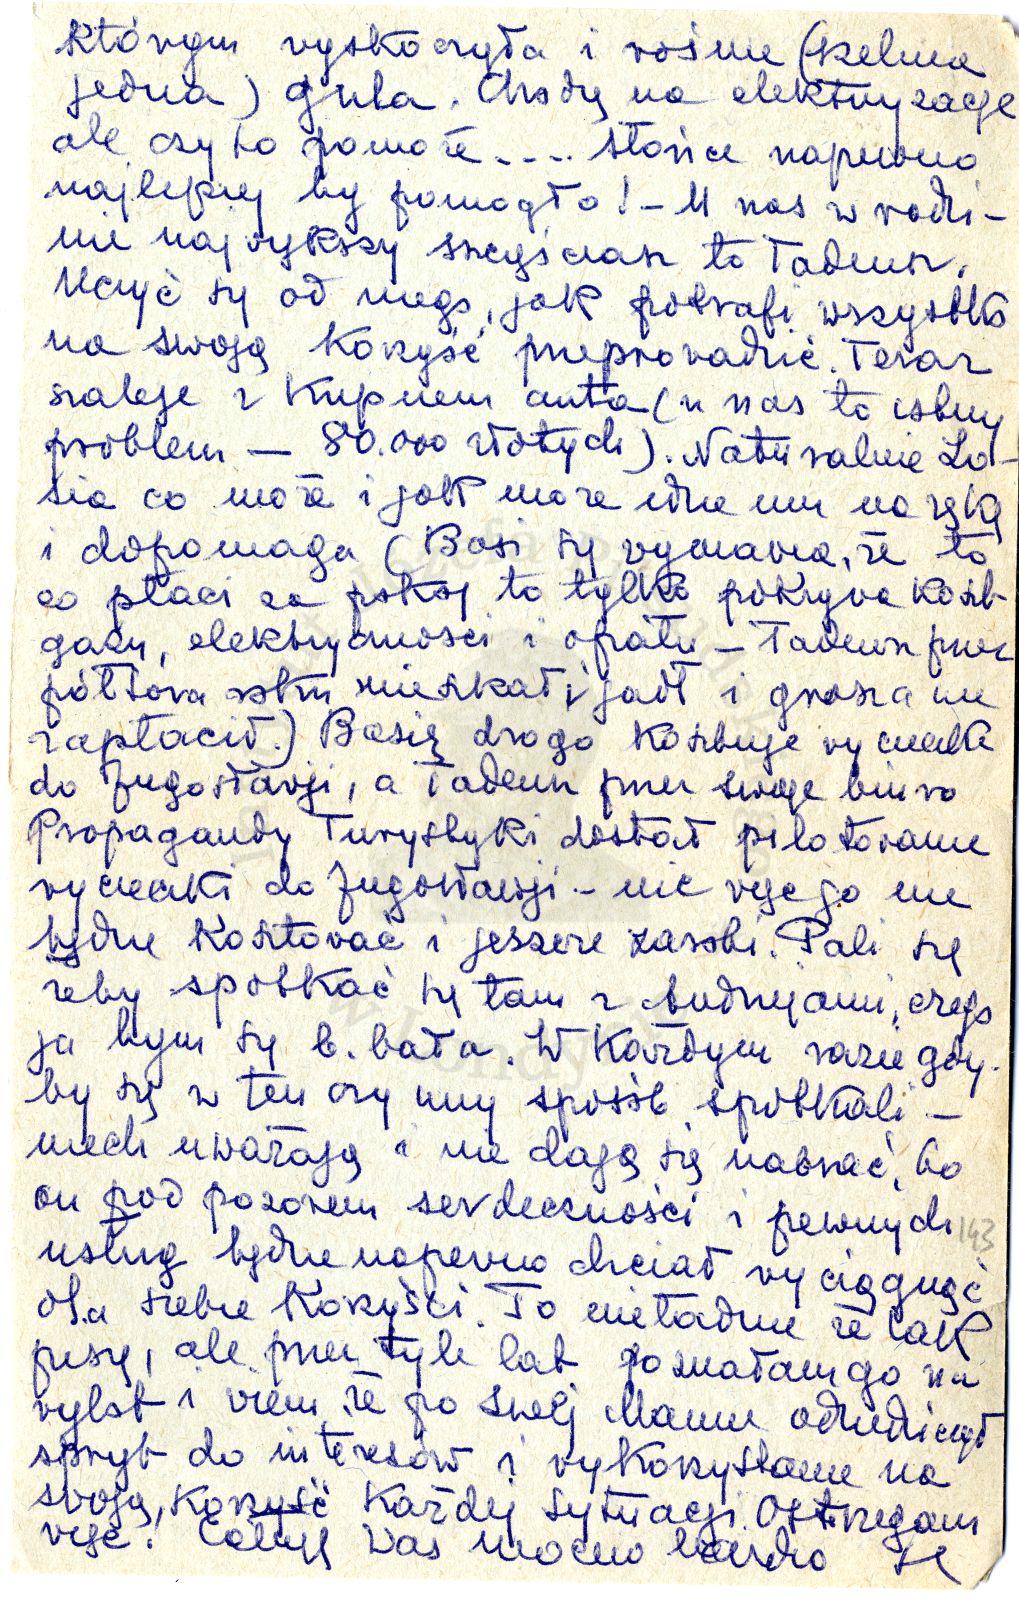 którym wyskoczyła i rośnie (szelma
jedna) gula. Chodzę na elektryzacje
ale czy to pomoże .... słońce napewno
najlepiej by pomogło! – U nas w rodzi-
nie największy szczęściarz to Tadeusz.
Uczyć się od niego, jak potrafi wszystko
na swoją kożyść przeprowadzić. Teraz
szaleje z kupnem auta (u nas to istny
problem — 80.000 złotych). Naturalnie Zo-
sia co może i jak może idzie mu na rękę
i dopomaga (Basi się wymawia, że to
co płaci za pokój to tylko pokrywa koszt
gazu, elektryczności i opału – Tadeusz przez
półtora roku mieszkał i jadł i grosza nie
zapłacił.) Basię drogo kosztuje wycieczka
do Jugosławji, a Tadeusz przez swoje biuro
Propagandy Turystyki dostał pilotowanie
wycieczki do Jugosławji – nic więc go nie
będzie kosztować i jeszcze zarobi. Pali się
żeby spotkać się tam z , czego
ja bym się b. bała. W każdym razie gdy-
by się w ten czy inny sposób spotkali –
niech uważają i nie dają się nabrać, bo
on pod pozorem serdeczności i pewnych
usług będzie napewno chciał wyciągnąć
dla siebie kożyści. To nieładnie że tak
piszę, ale przez tyle lat poznałam go na
wylot i wiem, że po swej Mamie odziedziczył
spryt do interesów i wykożystanie na
swoją kożyść każdej sytuacji. Ostrzegam
więc! Całuję Was mocno bardzo
143